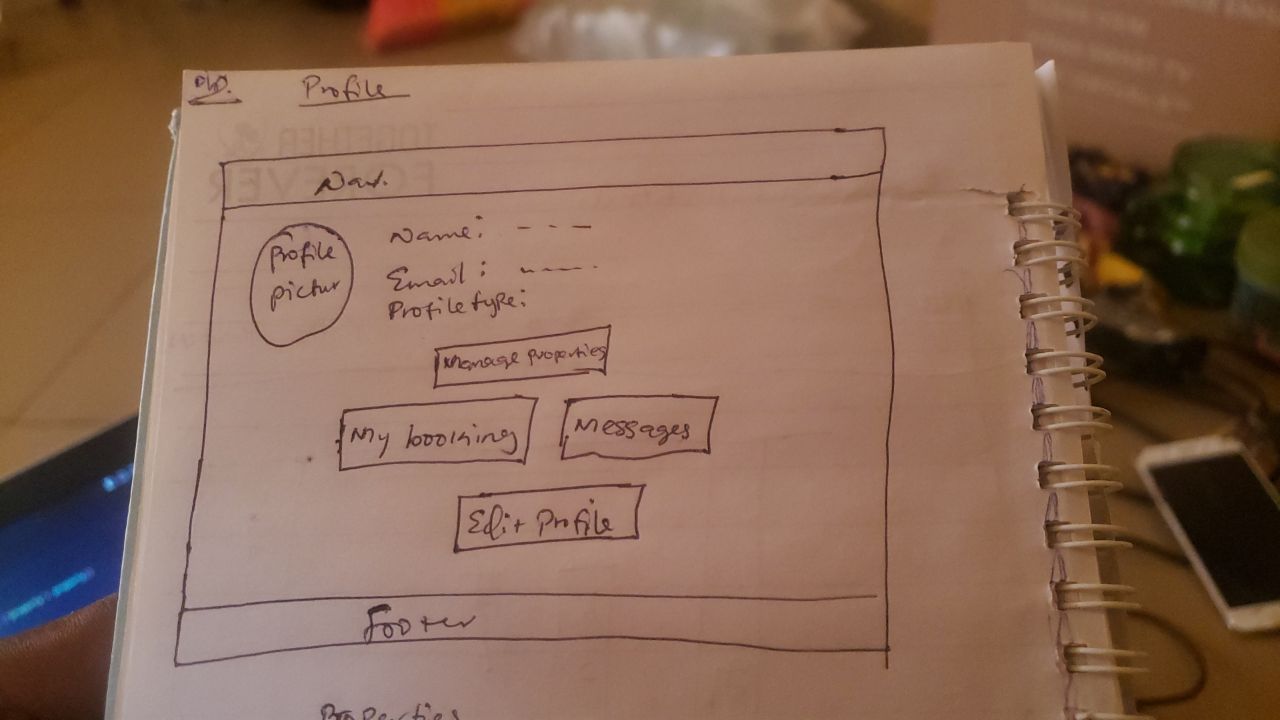 Profile
Nav.
Profile
pictur
Name: - - -
Email: - - - -
Profile type:
Manage properties
My booking
Messages
Edit Profile
Footer
Properties